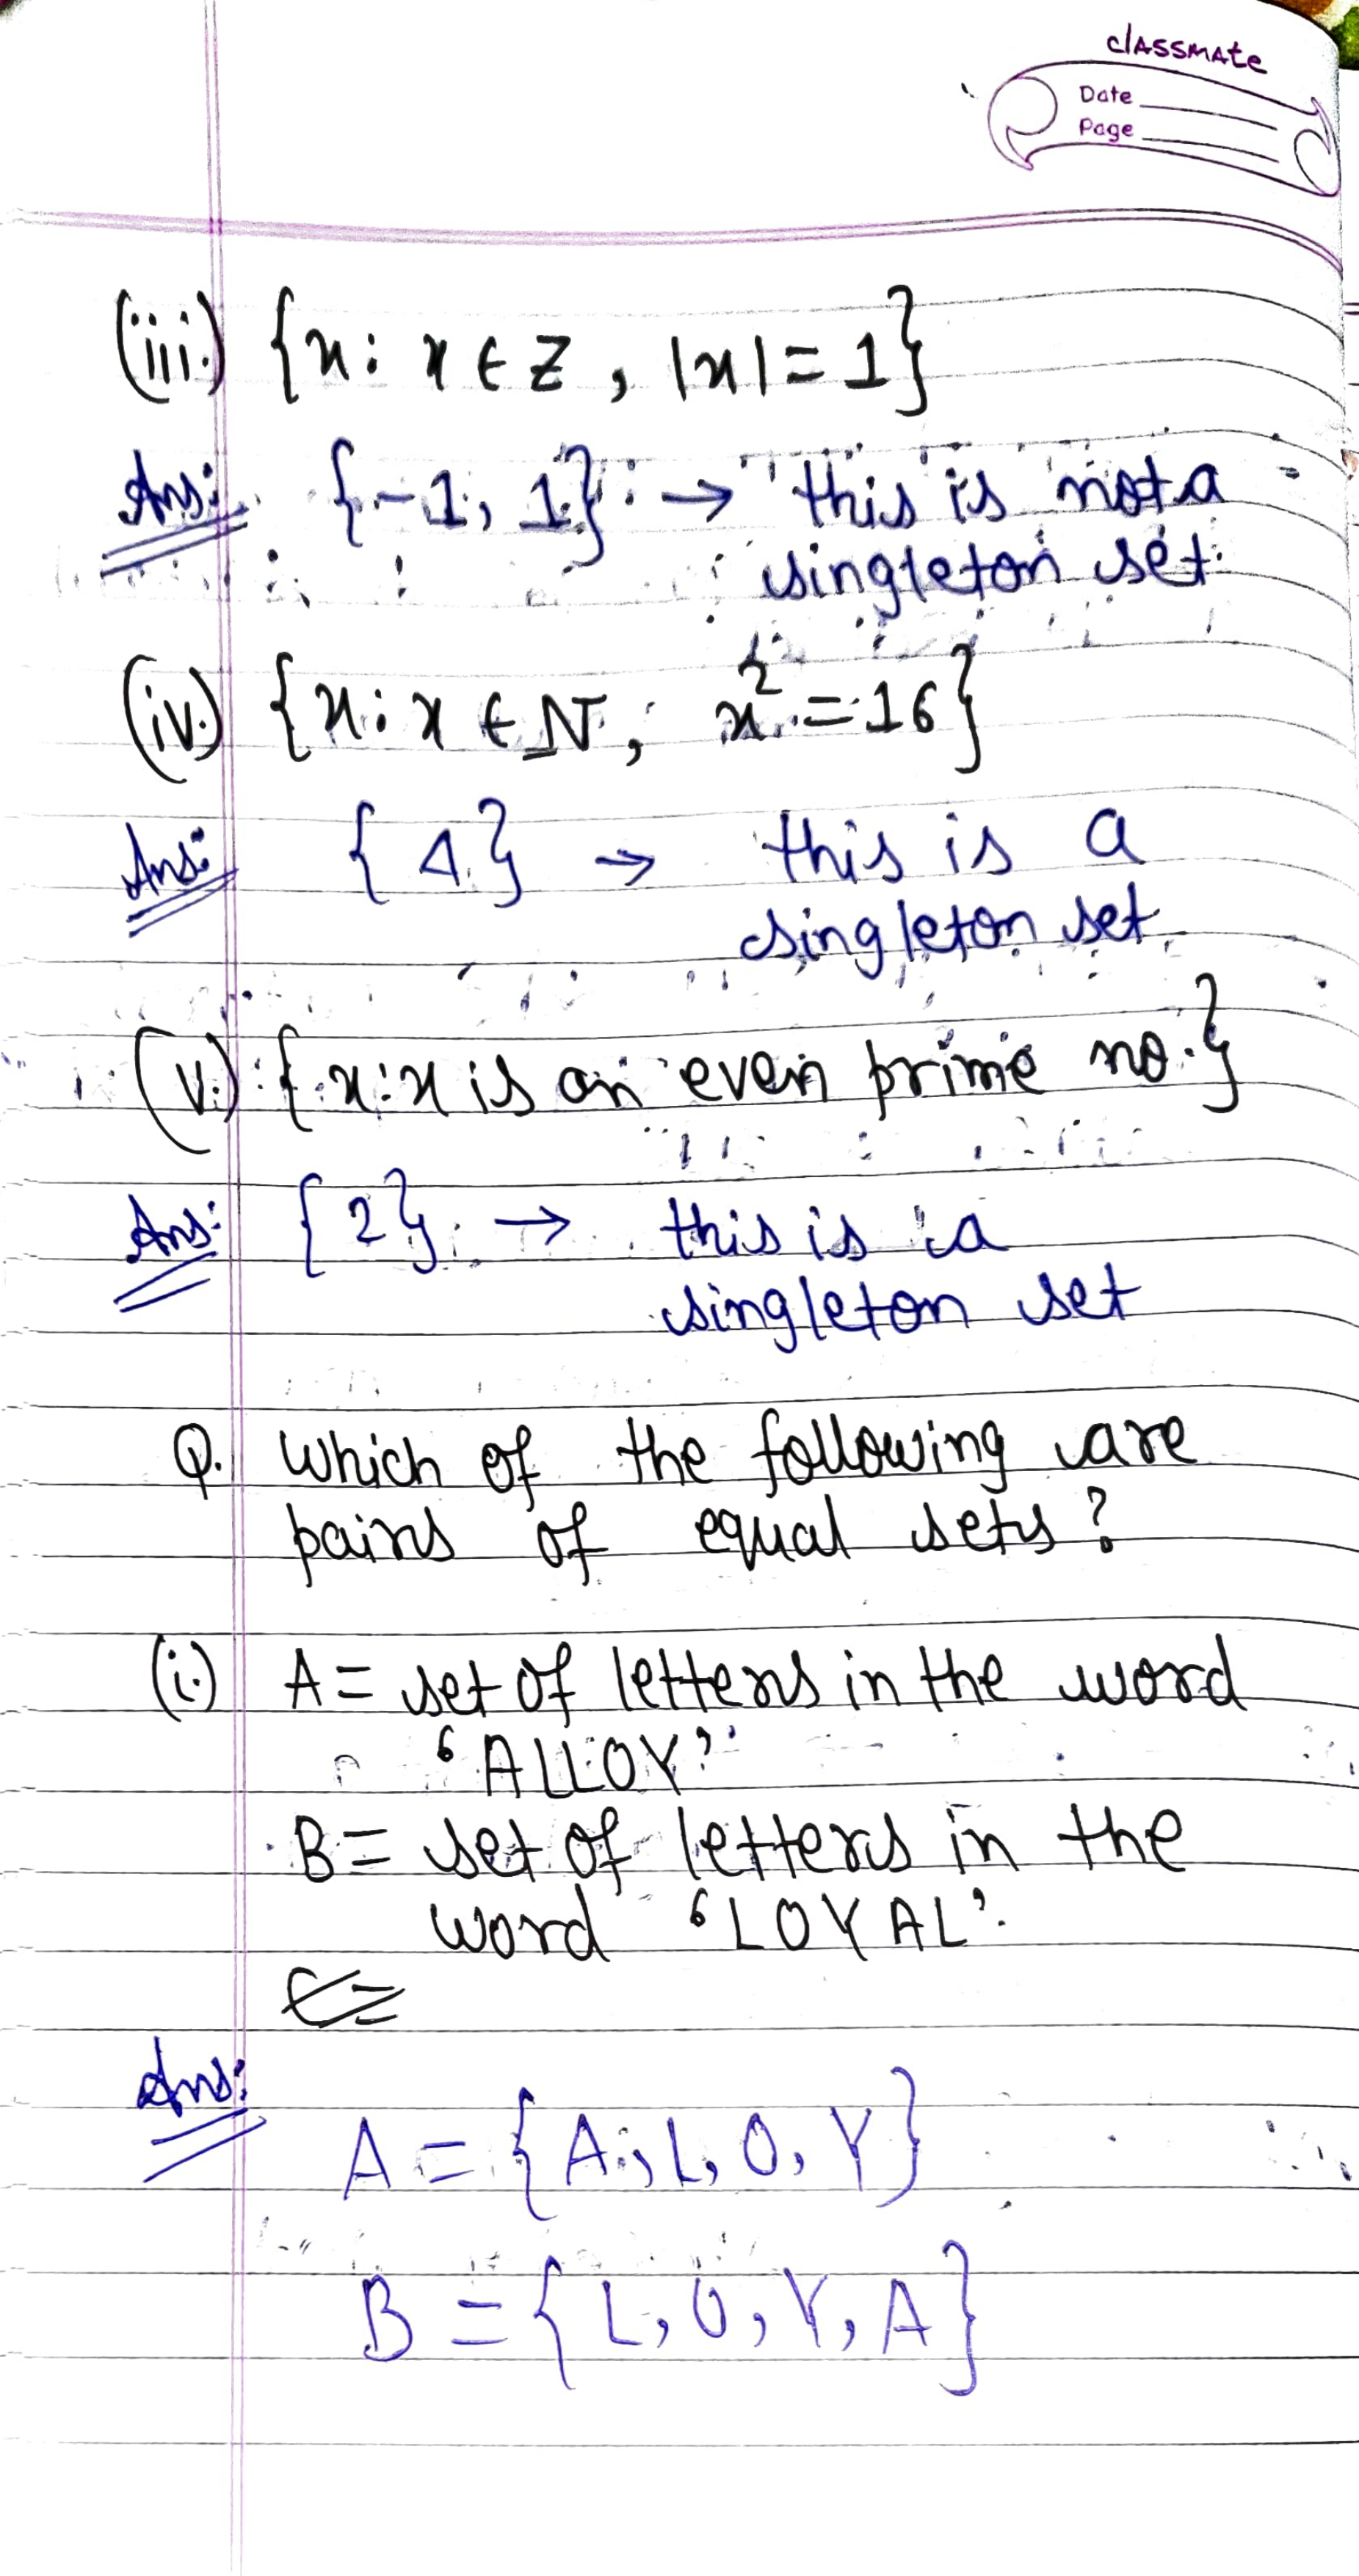 classmate
Date
Page
(iii.) {x: x ∈ Z, |x| = 1}
Ans: {-1, 1} → this is not a
singleton set.
(iv.) {x: x ∈ N, x² = 16}
Ans: {4} → this is a
singleton set.
(v.) {x: x is an even prime no.}
Ans: {2} → this is a
singleton set
Q. Which of the following are
pairs of equal sets?
(i.) A = set of letters in the word
'ALLOY'
B = set of letters in the
word 'LOYAL'.
Ans:
A = {A, L, O, Y}
B = {L, O, Y, A}